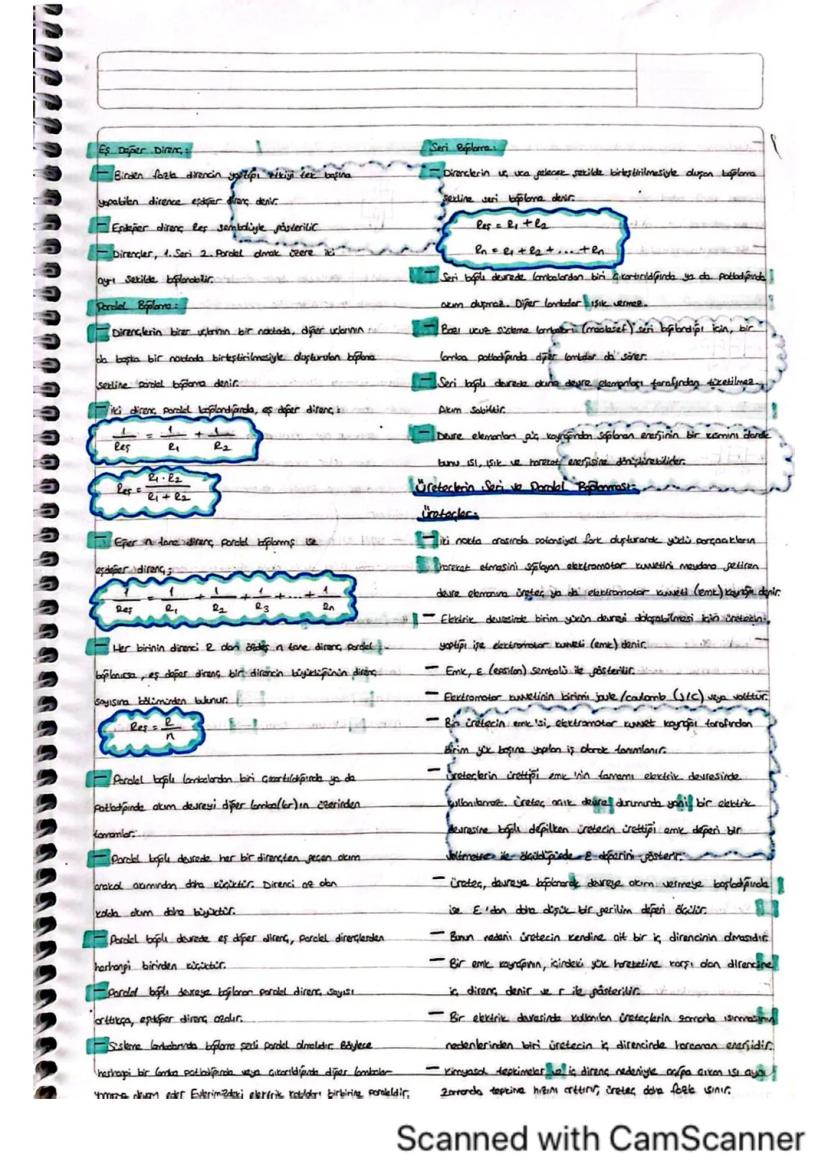 Eş Değer Direnç:
– Birden fazla direncin yaptığı etkiyi tek başına
yapabilen dirence eşdeğer direnç denir.
– Eşdeğer direnç Reş sembolüyle gösterilir.
– Dirençler, 1. Seri 2. Paralel olmak üzere iki
ayrı şekilde bağlanabilir.
Paralel Bağlama:
– Dirençlerin birer uçlarının bir noktada, diğer uçlarının
da başka bir noktada birleştirilmesiyle oluşturulan bağlama
şekline paralel bağlama denir.
– İki direnç paralel bağlandığında, eş değer direnç;
1/Reş = 1/R1 + 1/R2
Reş = R1 . R2 / R1 + R2
– Eğer n tane direnç paralel bağlanmış ise
eşdeğer direnç;
1/Reş = 1/R1 + 1/R2 + 1/R3 + ... + 1/Rn
– Her birinin direnci R olan özdeş n tane direnç paralel
bağlanırsa, eş değer direnç bir direncin büyüklüğünün direnç
sayısına bölümünden bulunur.
Reş = R/n
– Paralel bağlı lambalardan biri çıkartıldığında ya da
patladığında akım devreyi diğer lamba(lar)ın üzerinden
tamamlar.
– Paralel bağlı devrede her bir dirençten geçen akım
anakol akımından daha küçüktür. Direnci az olan
kolda akım daha büyüktür.
– Paralel bağlı devrede eş değer direnç, paralel dirençlerden
herhangi birinden küçüktür.
– Paralel bağlı devreye bağlanan paralel direnç sayısı
arttıkça, eşdeğer direnç azalır.
– Süsleme lambalarında bağlama şekli paralel olmalıdır. Böylece
herhangi bir lamba patladığında veya çıkarıldığında diğer lambalar
yanmaya devam eder. Evlerimizdeki elektrik kabloları birbirine paraleldir.
Seri Bağlama:
– Dirençlerin uç uca gelecek şekilde birleştirilmesiyle oluşan bağlama
şekline seri bağlama denir.
Reş = R1 + R2
Rn = R1 + R2 + ... + Rn
– Seri bağlı devrede lambalardan biri çıkartıldığında ya da patladığında
akım oluşmaz. Diğer lambalar ışık vermez.
– Bazı ucuz süsleme lambaları (maalesef) seri bağlandığı için, bir
lamba patladığında diğer lambalar da söner.
– Seri bağlı devrede akım devre elemanları tarafından tüketilmez.
Akım sabittir.
– Devre elemanları güç kaynağından sağlanan enerjinin bir kısmını alarak
bunu ısı, ışık ve hareket enerjisine dönüştürebilirler.
Üreteçlerin Seri ve Paralel Bağlanması:
Üreteçler:
– İki nokta arasında potansiyel fark oluşturarak yüklü parçacıkların
hareket etmesini sağlayan elektromotor kuvvetini meydana getiren
devre elemanına üreteç ya da elektromotor kuvveti (emk) kaynağı denir.
– Elektrik devresinde birim yükün devreyi dolaşabilmesi için üretecin
yaptığı işe elektromotor kuvveti (emk) denir.
– Emk, ε (epsilon) sembolü ile gösterilir.
– Elektromotor kuvvetinin birimi joule/coulomb (J/C) veya volttur.
– Bir üretecin emk'si, elektromotor kuvvet kaynağı tarafından
birim yük başına yapılan iş olarak tanımlanır.
– Üreteçlerin ürettiği emk'nin tamamı elektrik devresinde
kullanılamaz. Üreteç açık devre durumunda yani bir elektrik
devresine bağlı değilken üretecin ürettiği emk değeri bir
voltmetre ile ölçüldüğünde ε değerini gösterir.
– Üreteç, devreye bağlanarak devreye akım vermeye başladığında
ise ε'dan daha düşük bir gerilim değeri ölçülür.
– Bunun nedeni üretecin kendine ait bir iç direncinin olmasıdır.
– Bir emk kaynağının, içindeki yük hareketine karşı olan direncine
iç direnç denir ve r ile gösterilir.
– Bir elektrik devresinde kullanılan üreteçlerin zamanla ısınmasının
nedenlerinden biri üretecin iç direncinde harcanan enerjidir.
– Kimyasal tepkimeler ve iç direnç nedeniyle açığa çıkan ısı aynı
zamanda tepkime hızını arttırır, üreteç daha fazla ısınır.
Scanned with CamScanner